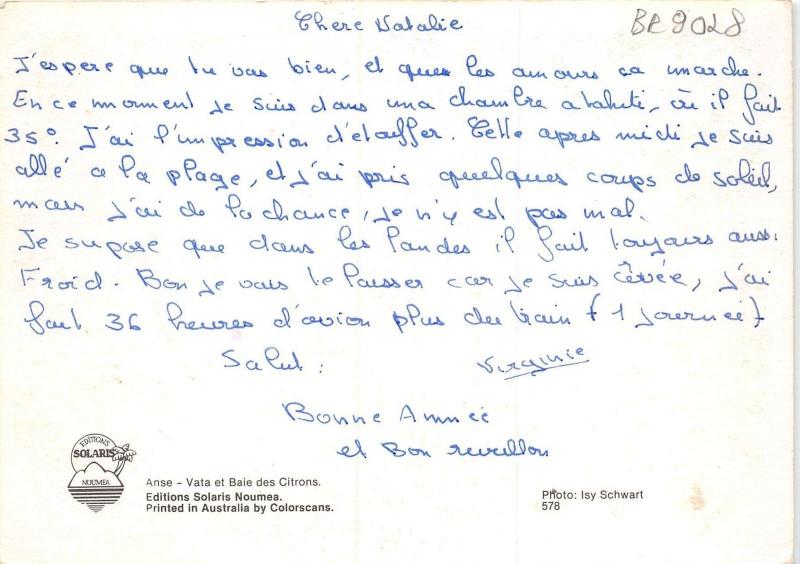 Chere Natalie
BR 9028
J'espere que tu vas bien, et que les amours ca marche.
En ce moment je suis dans una chambre a tahiti, où il fait
35°. J'ai l'impression d'étouffer. Cette apres midi je suis
allé a la plage, et j'ai pris quelques coups de soleil,
mais j'ai de la chance, je n'y est pas mal.
Je supose que dans les Landes il fait toujours aussi
Froid. Bon je vais te laisser car je suis crevée, j'ai
fait 36 heures d'avion plus du train (1 journeé)
Salut :
Virginie
Bonne Anneé
et Bon reveillon
EDITIONS
SOLARIS
NOUMEA
Anse - Vata et Baie des Citrons.
Editions Solaris Noumea.
Printed in Australia by Colorscans.
Photo: Isy Schwart
578